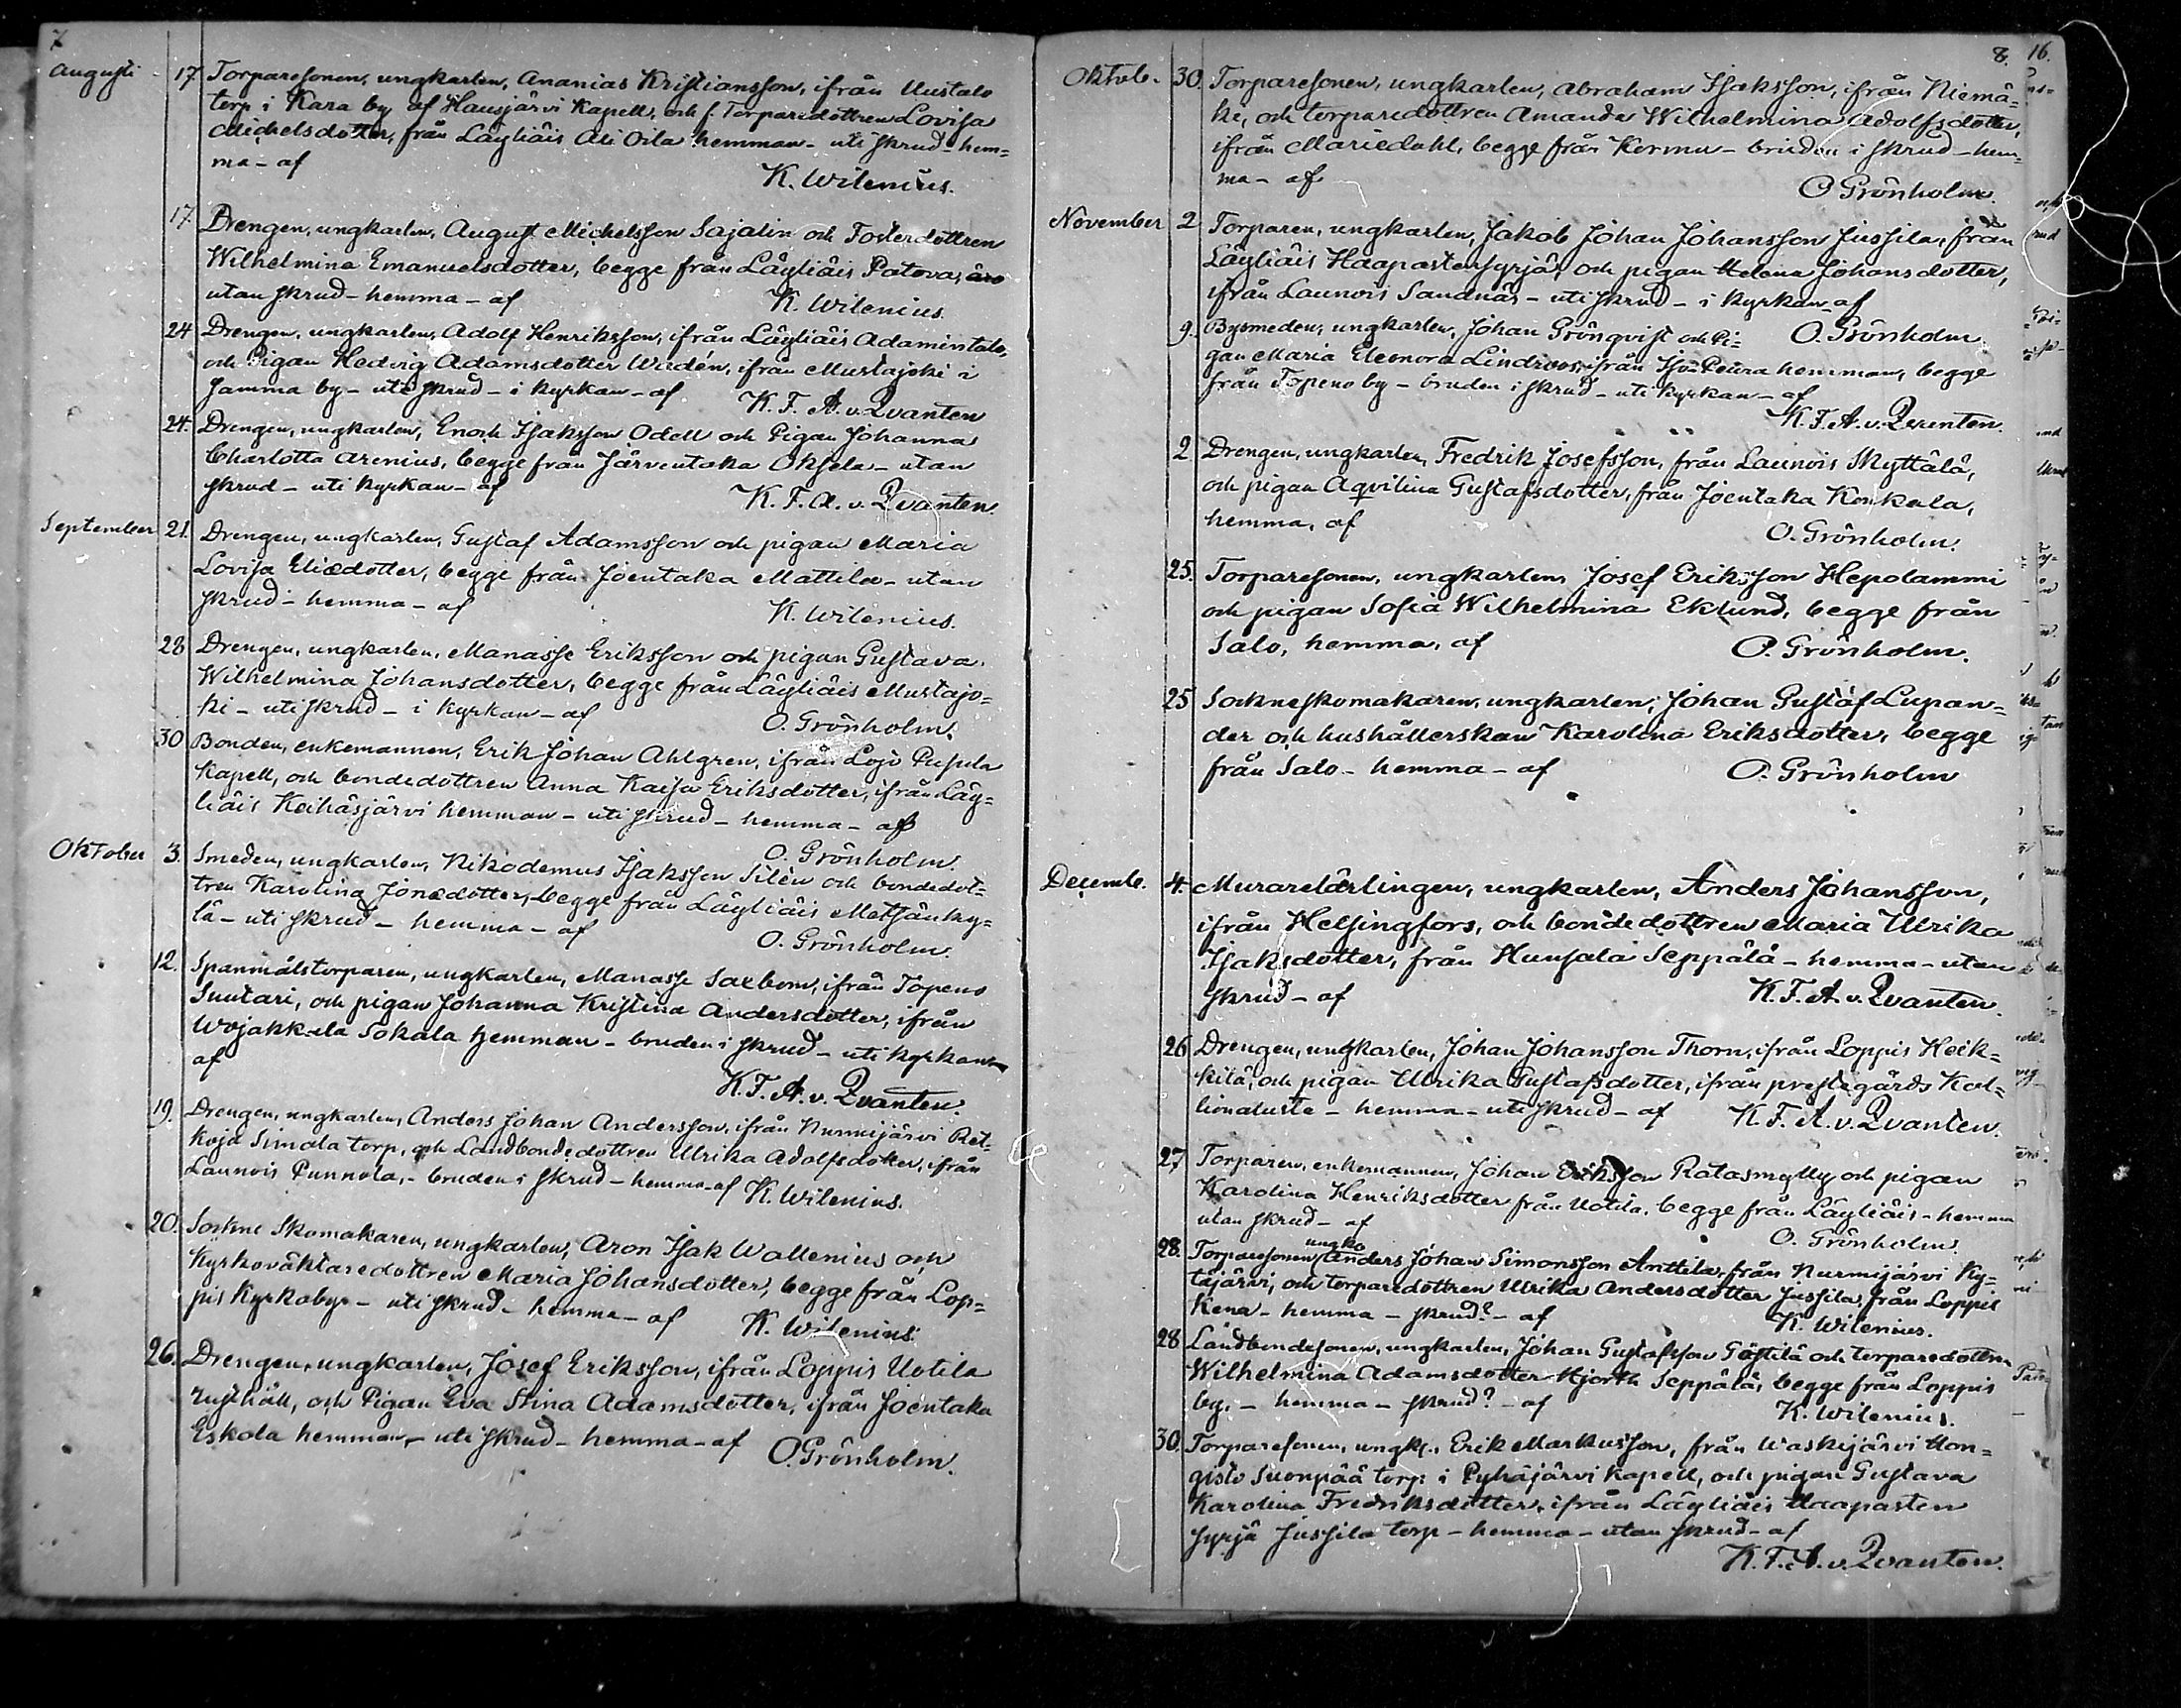 7
Augusti 17 Torparesonen, ungkarlen, Ananias Kristiansson, ifrån Uustalo
torp i Kara by af Hausjärvi Kapell, och f. Torparedottren Lovisa
Michelsdotter, från Läyliäis Ali Oila hemman - uti skrud - hem=
ma - af
K. Wilenius.
17 Drengen, ungkarlen, August Michelsson Sajalin och Fosterdottren
Wilhelmina Emanuelsdotter, begge från Läyliäis Patova,
utan skrud - hemma - af K. Wilenius.
24 Drengen, ungkarlen, Adolf Henriksson, ifrån Läyliäis Adamintalo,
och Pigan Hedvig Adamsdotter Widén, ifrån Mustajoki i
Jamma by - uti skrud - i kyrkan - af K. F. A. v. Qvanten
24. Drengen, ungkarlen, Enoch Isaksson Odell och Pigan Johanna
Charlotta Arenius, begge från Järventaka Oksela - utan
skrud - uti kyrkan - af K. F. A. v. Qvanten.
September 21. Drengen, ungkarlen, Gustaf Adamsson och pigan Maria
Lovisa Eliædotter, begge från Joentaka Mattila - utan
skrud - hemma - af K. Wilenius.
28 Drengen, ungkarlen, Manasse Eriksson och pigan Gustava
Wilhelmina Johansdotter, begge från Läyliäis Mustajo=
ki - uti skrud - i kyrkan - af O. Grönholm.
30 Bonden, enkemannen, Erik Johan Ahlgren, ifrån Lojo Pusula
Kapell, och bondedottren Anna Kaisa Eriksdotter, ifrån Läy=
liäis Keihäsjärvi hemman - uti skrud - hemma - af
O. Grönholm.
Oktober 3. Smeden, ungkarlen, Nikodemus Isaksson Silén och bondedot=
tren Karolina Jonædotter, begge från Läyliäis Metsänky=
lä - uti skrud - hemma - af O. Grönholm.
12. Spanmålstorparen, ungkarlen, Manasse Saxbom, ifrån Topeno
Suutari, och pigan Johanna Kristina Andersdotter, ifrån
Wojakkala Sokala hemman - bruden i skrud - uti kyrkan -
af
K. F. A. v. Qvanten.
19. Drengen, ungkarlen, Anders Johan Andersson, ifrån Nurmijärvi Ret=
koja Simola torp, och Landbondedottren Ulrika Adolfsdotter, ifrån
Launois Punnola, - bruden i skrud - hemma - af K. Wilenius.
20. Sockne Skomakaren, ungkarlen, Aron Isak Wallenius och
Kyrkoväktaredottren Maria Johansdotter, begge från Lop=
pis Kyrkoby - uti skrud - hemma - af K. Wilenius.
26. Drengen, ungkarlen, Josef Eriksson, ifrån Loppis Uotila
rusthåll, och Pigan Eva Stina Adamsdotter, ifrån Joentaka
Eskola hemman - uti skrud - hemma - af O. Grönholm.
8. 16.
Oktob. 30. Torparesonen, ungkarlen, Abraham Isaksson, ifrån Niemä=
ke, och torparedottren Amanda Wilhelmina Adolfsdotter,
ifrån Mariedahl, begge från Kormu - bruden i skrud - hem=
ma - af
O Grönholm.
November 2 Torparen, ungkarlen, Jakob Johan Johansson Jussila, från
Läyliäis Haapastensyrjä, och pigan Helena Johansdotter,
ifrån Launois Sandnäs - uti skrud - i kyrkan - af
O. Grönholm
9. Bysmeden, ungkarlen, Johan Grönqvist och Pi=
gan Maria Eleonora Lindroos, ifrån Iso-Peura hemman, begge
från Topeno by - bruden i skrud - uti kyrkan - af
K. F. A. v. Qvanten.
2 Drengen, ungkarlen, Fredrik Josefsson, från Launois Myttälä,
och pigan Aqvilina Gustafsdotter, från Joentaka Konkala,
hemma, af
O. Grönholm.
25. Torparesonen, ungkarlen, Josef Eriksson Hepolammi
och pigan Sofia Wilhelmina Eklund, begge från
Salo, hemma, af O. Grönholm.
25 Sockneskomakaren, ungkarlen, Johan Gustaf Lupan=
der och hushållerskan Karolina Eriksdotter, begge
från Salo - hemma - af O. Grönholm
Decemb. 4. Murarelärlingen, ungkarlen, Anders Johansson,
ifrån Helsingfors, och bondedottren Maria Ulrika
Isaksdotter, från Hunsala Seppälä - hemma - utan
skrud - af K. F. A. v. Qvanten.
26 Drengen, ungkarlen, Johan Johansson Thorn, ifrån Loppis Heik=
kilä, och pigan Ulrika Gustafsdotter, ifrån prestegårds Kal=
lionaluste - hemma - uti skrud - af K. F. A. v. Qvanten.
27 Torparen, enkemannen, Johan Eriksson Ratasmylly och pigan
Karolina Henriksdotter från Uotila, begge från Läyliäis - hemma
utan skrud - af O. Grönholm.
28. Torparesonen, ungk. Anders Johan Simonsson Anttila, från Nurmijärvi Ky=
täjärvi, och torparedottren Ulrika Andersdotter Jussila, från Loppis
Kena - hemma - skrud? - af K. Wilenius.
28 Landbondesonen, ungkarlen, Johan Gustafsson Gästilä och torparedottren
Wilhelmina Adamsdotter Hjorth Seppälä, begge från Loppis
by, - hemma - skrud? - af K. Wilenius.
30. Torparesonen, ungk., Erik Markusson, från Waskijärvi Hon=
gisto Suonpää torp i Pyhäjärvi kapell, och pigan Gustava
Karolina Fredriksdotter, ifrån Läyliäis Haapasten
syrjä Jussila torp - hemma - utan skrud - af
K. F. A. v. Qvanten.